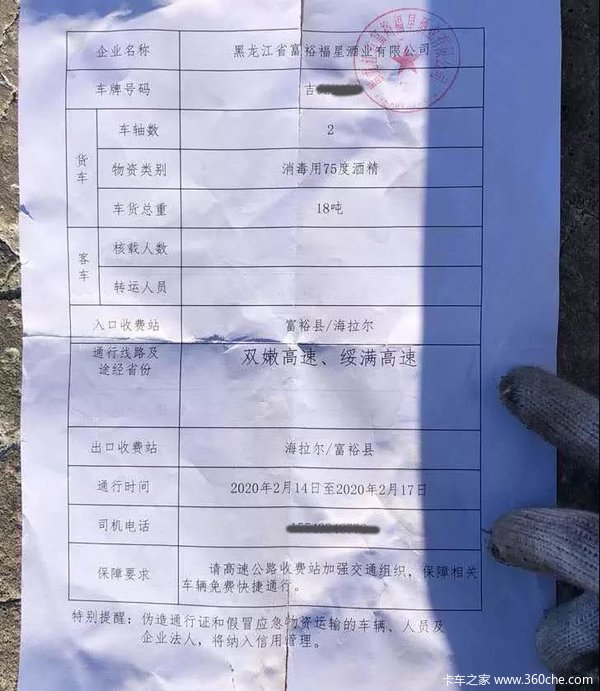 企业名称 黑龙江省富裕福星酒业有限公司
车牌号码 吉
货车 车轴数 2
物资类别 消毒用75度酒精
车货总重 18吨
客车 核载人数
转运人员
入口收费站 富裕县/海拉尔
通行线路及
途经省份 双嫩高速、绥满高速
出口收费站 海拉尔/富裕县
通行时间 2020年2月14日至2020年2月17日
司机电话
保障要求 请高速公路收费站加强交通组织，保障相关
车辆免费快捷通行。
特别提醒：伪造通行证和假冒应急物资运输的车辆、人员及
企业法人，将纳入信用管理。
卡车之家 www.360che.com